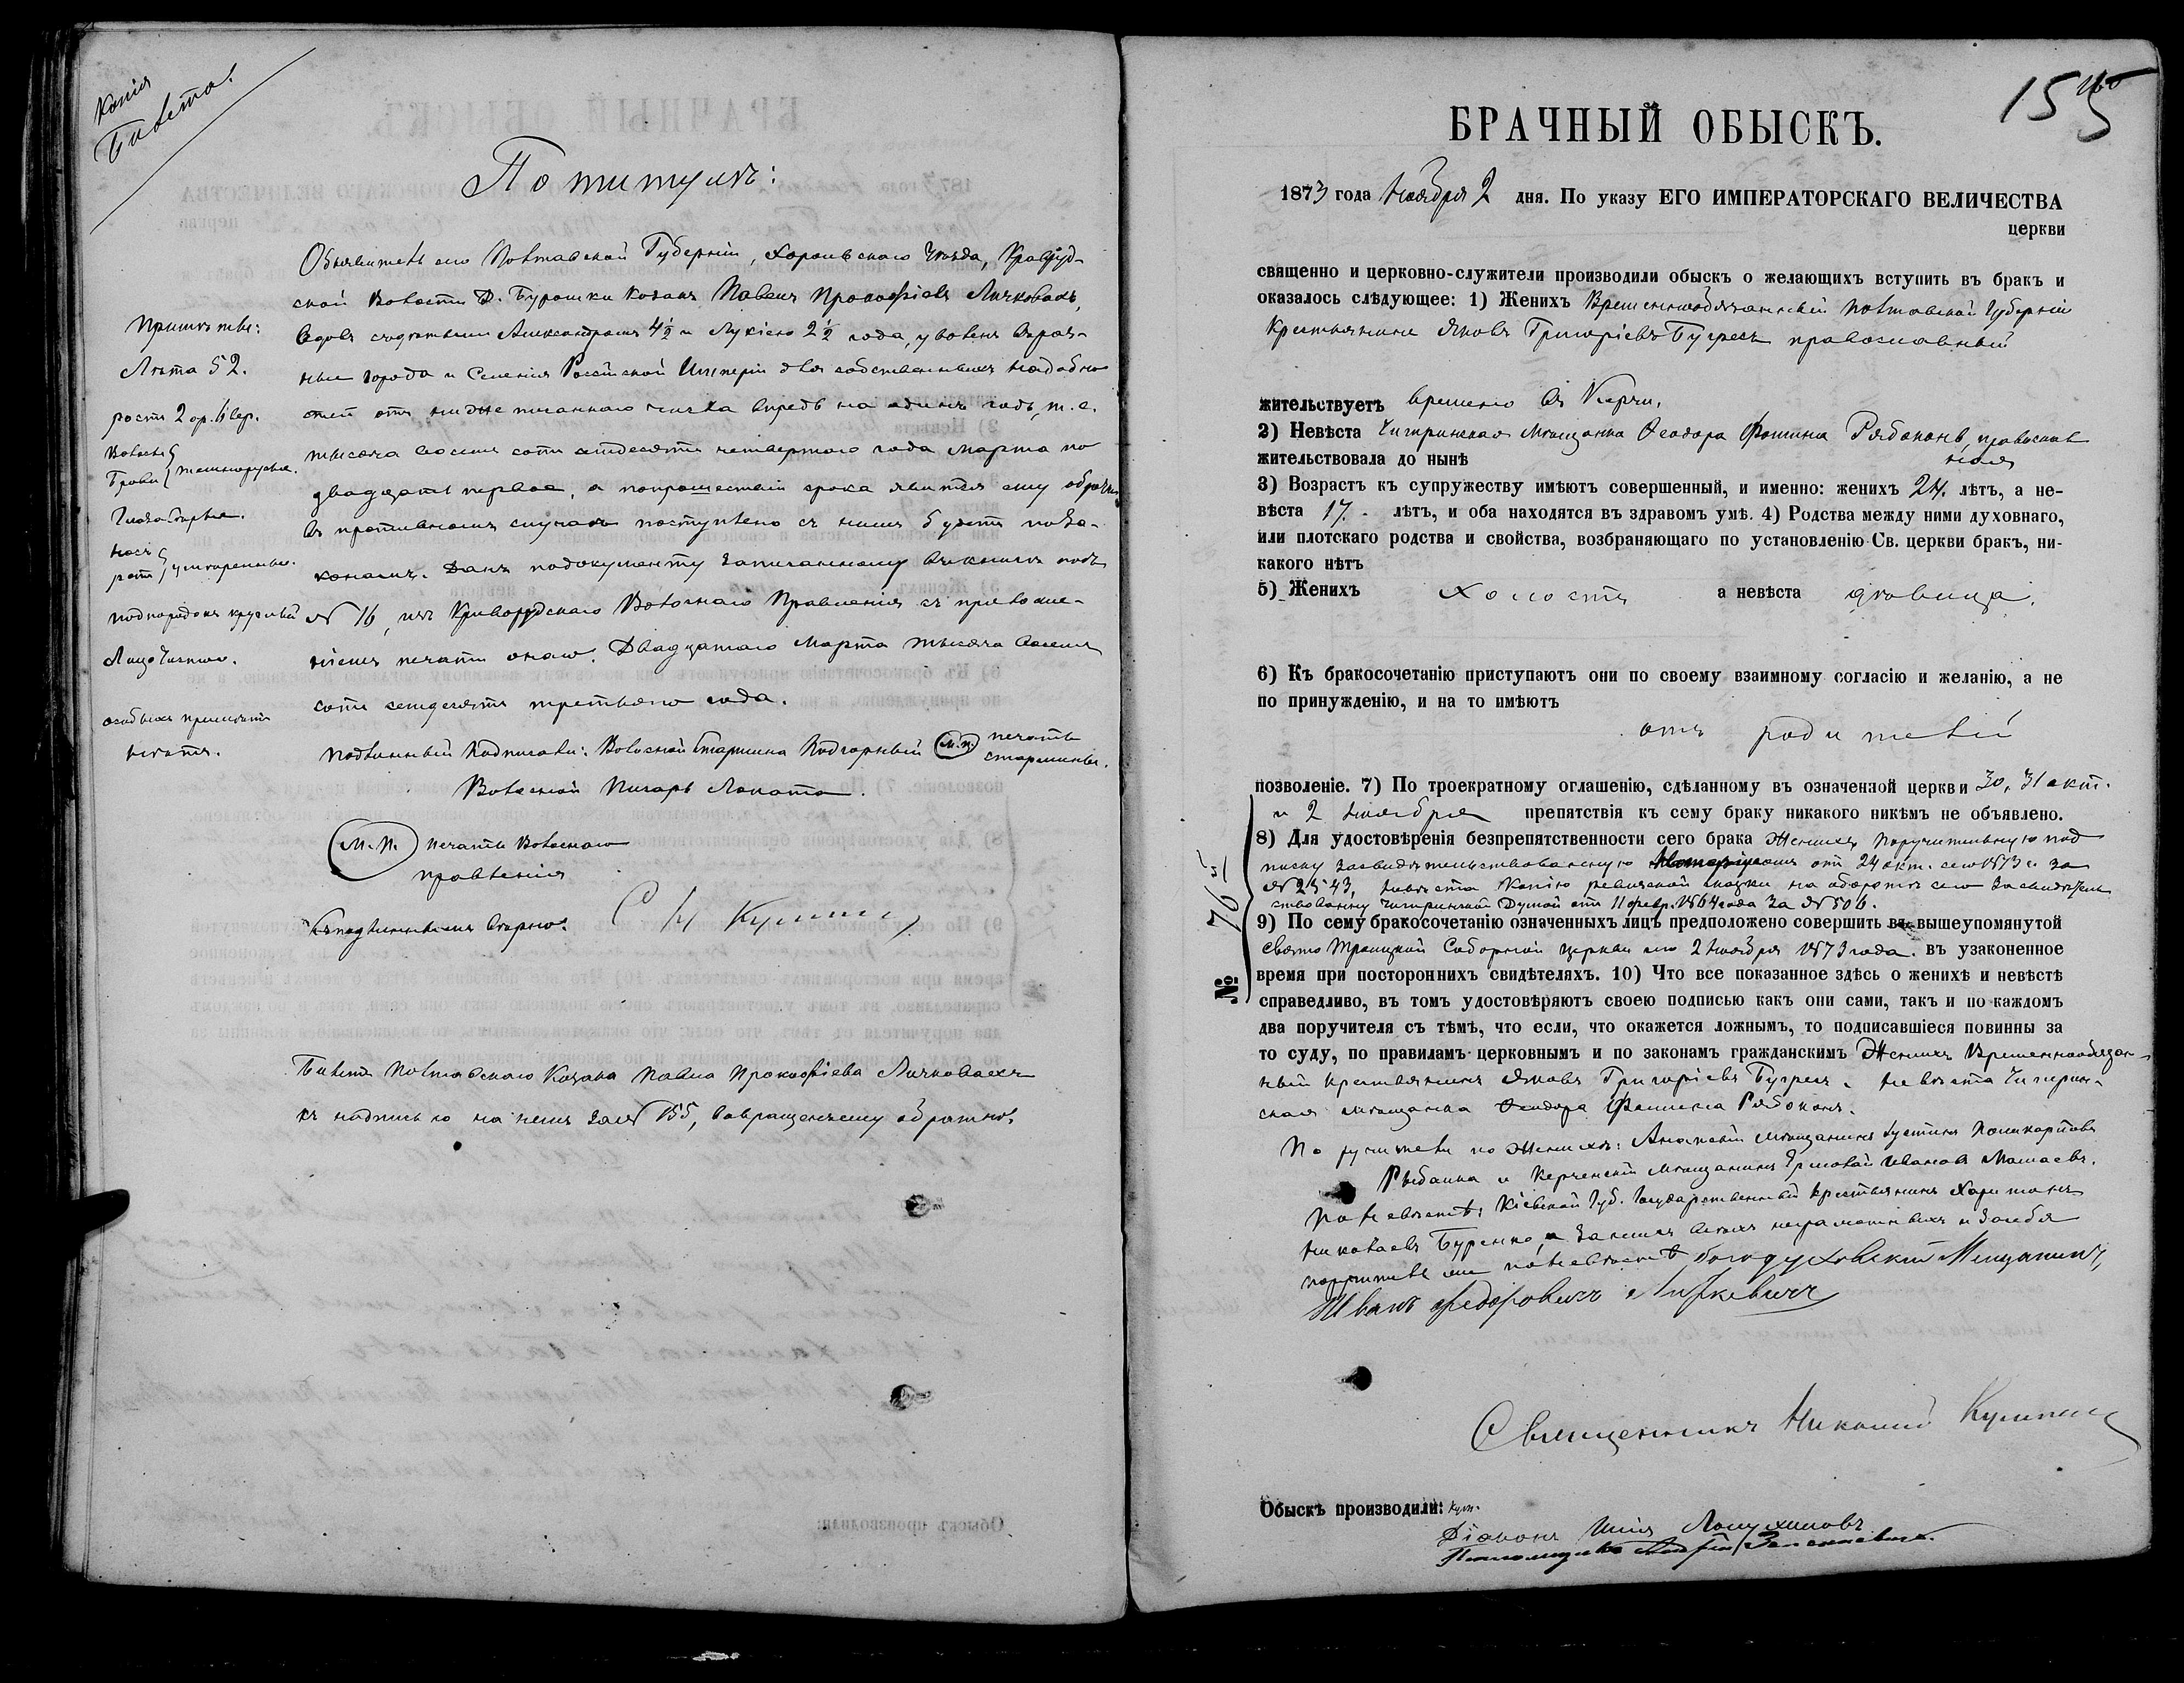 Копія
Билета.
По титулѣ:
Объявитель сего Полтавской Губерніи, Хорольскаго Уѣзда, Криворуд-
ской Волости Д. Бурошки Козакъ Павелъ Прокофіевъ
Вдовъ съ дѣтьми Александромъ 4½ и Лукіею 2½ года, уволенъ въ раз-
ные города и Селенія Россійской Имперіи для собственныхъ надобно
стей отъ нижеписаннаго числа впредь на одинъ годъ, т. е.
тысяча восемь сотъ семдесятъ четвертаго года Марта по
двадцать первое, а по прошествіи срока явится ему обратно
въ противномъ случаѣ поступлено съ нимъ будетъ по за-
конамъ. Данъ по документу записанному въ книгѣ подъ
№ 16, изъ Криворудскаго Волостнаго Правленія съ приложе-
ніемъ печати онаго. Двадцатаго Марта тысяча восемь
сотъ семдесятъ третьяго года.
Подлинный подписали: Волосной Старшина Подгорный М.П. печать
старшины.
Волосной Писарь Лопата.
М.П. печать Волоснаго
правленія
Съ подлиннымъ вѣрно: С. Н. Кулиш
Примѣты:
Лѣта 52.
ростъ 2 ар. 6 вер.
Волосы
Брови темнорусые.
Глаза Сѣрые.
носъ
ротъ умѣренные.
подпородокъ круглый
Лицо чистое.
особыхъ примѣтъ
нѣтъ.
Билетъ Полтавскаго Козака Павла Прокофіева
съ надписью на немъ за № 155, возвращенъ ему обратно.
155
БРАЧНЫЙ ОБЫСКЪ.
1873 года Ноября 2 дня. По указу ЕГО ИМПЕРАТОРСКАГО ВЕЛИЧЕСТВА
церкви
священно и церковно-служители производили обыскъ о желающихъ вступить въ бракъ и
оказалось слѣдующее: 1) Женихъ Временнообязанный Полтавской Губерніи
Крестьянинъ Яковъ Григоріевъ Бугрей православный
жительствуетъ временно въ Керчи.
2) Невѣста Чигиринская Мѣщанка Ѳеодора Фомина Рябоконь, православ
ная
жительствовала до нынѣ
3) Возрастъ къ супружеству имѣютъ совершенный, и именно: женихъ 24. лѣтъ, а не-
вѣста 17. лѣтъ, и оба находятся въ здравомъ умѣ. 4) Родства между ними духовнаго,
или плотскаго родства и свойства, возбраняющаго по установленію Св. церкви бракъ, ни-
какого нѣтъ
5) Женихъ холостъ а невѣста дѣвица.
6) Къ бракосочетанію приступаютъ они по своему взаимному согласію и желанію, а не
по принужденію, и на то имѣютъ
отъ родителей
позволеніе. 7) По троекратному оглашенію, сдѣланному въ означенной церкви 30, 31 окт.
и 2 Ноября препятствія къ сему браку никакого никѣмъ не объявлено.
8) Для удостовѣренія безпрепятственности сего брака Женихъ поручительную под
писку засвидѣтельствованную Нотаріусомъ отъ 24 окт. сего 1873 г. за
№ 2543, невѣста Копію ревизской сказки на оборотѣ сего засвидѣтель
ствованну Чигиринской Думой отъ 11 февр. 1864 года за № 506.
9) По сему бракосочетанію означенныхъ лицъ предположено совершить въ вышеупомянутой
Свято Троицкой Соборной церкви сего 2 Ноября 1873 года. въ узаконенное
время при постороннихъ свидѣтеляхъ. 10) Что все показанное здѣсь о женихѣ и невѣстѣ
справедливо, въ томъ удостовѣряютъ своею подписью какъ они сами, такъ и по каждомъ
два поручителя съ тѣмъ, что если, что окажется ложнымъ, то подписавшіеся повинны за
то суду, по правиламъ церковнымъ и по законамъ гражданскимъ Женихъ Временнообязан-
ный крестьянинъ Яковъ Григорьевъ Бугрей. Невѣста Чигирин-
ская мѣщанка Ѳеодора Фомина Рябоконь.
Поручители по Женихѣ: Анапскій мѣщанинъ Іустинъ Поликарповъ
Рыбалка и Керченскій мѣщанинъ Ермолай Ивановъ
По невѣстѣ: Кіевской Губ. Государственный крестьянинъ Харитонъ
Николаевъ Буренко, а за нихъ всѣхъ неграмотныхъ и за себя
поручитель по невѣстѣ богодуховскій Мещанинъ,
Иванъ Федоровичъ
Священникъ Николай Кулиш
№ 765
Обыскъ производили:
Діаконъ Илія
Псаломщикъ